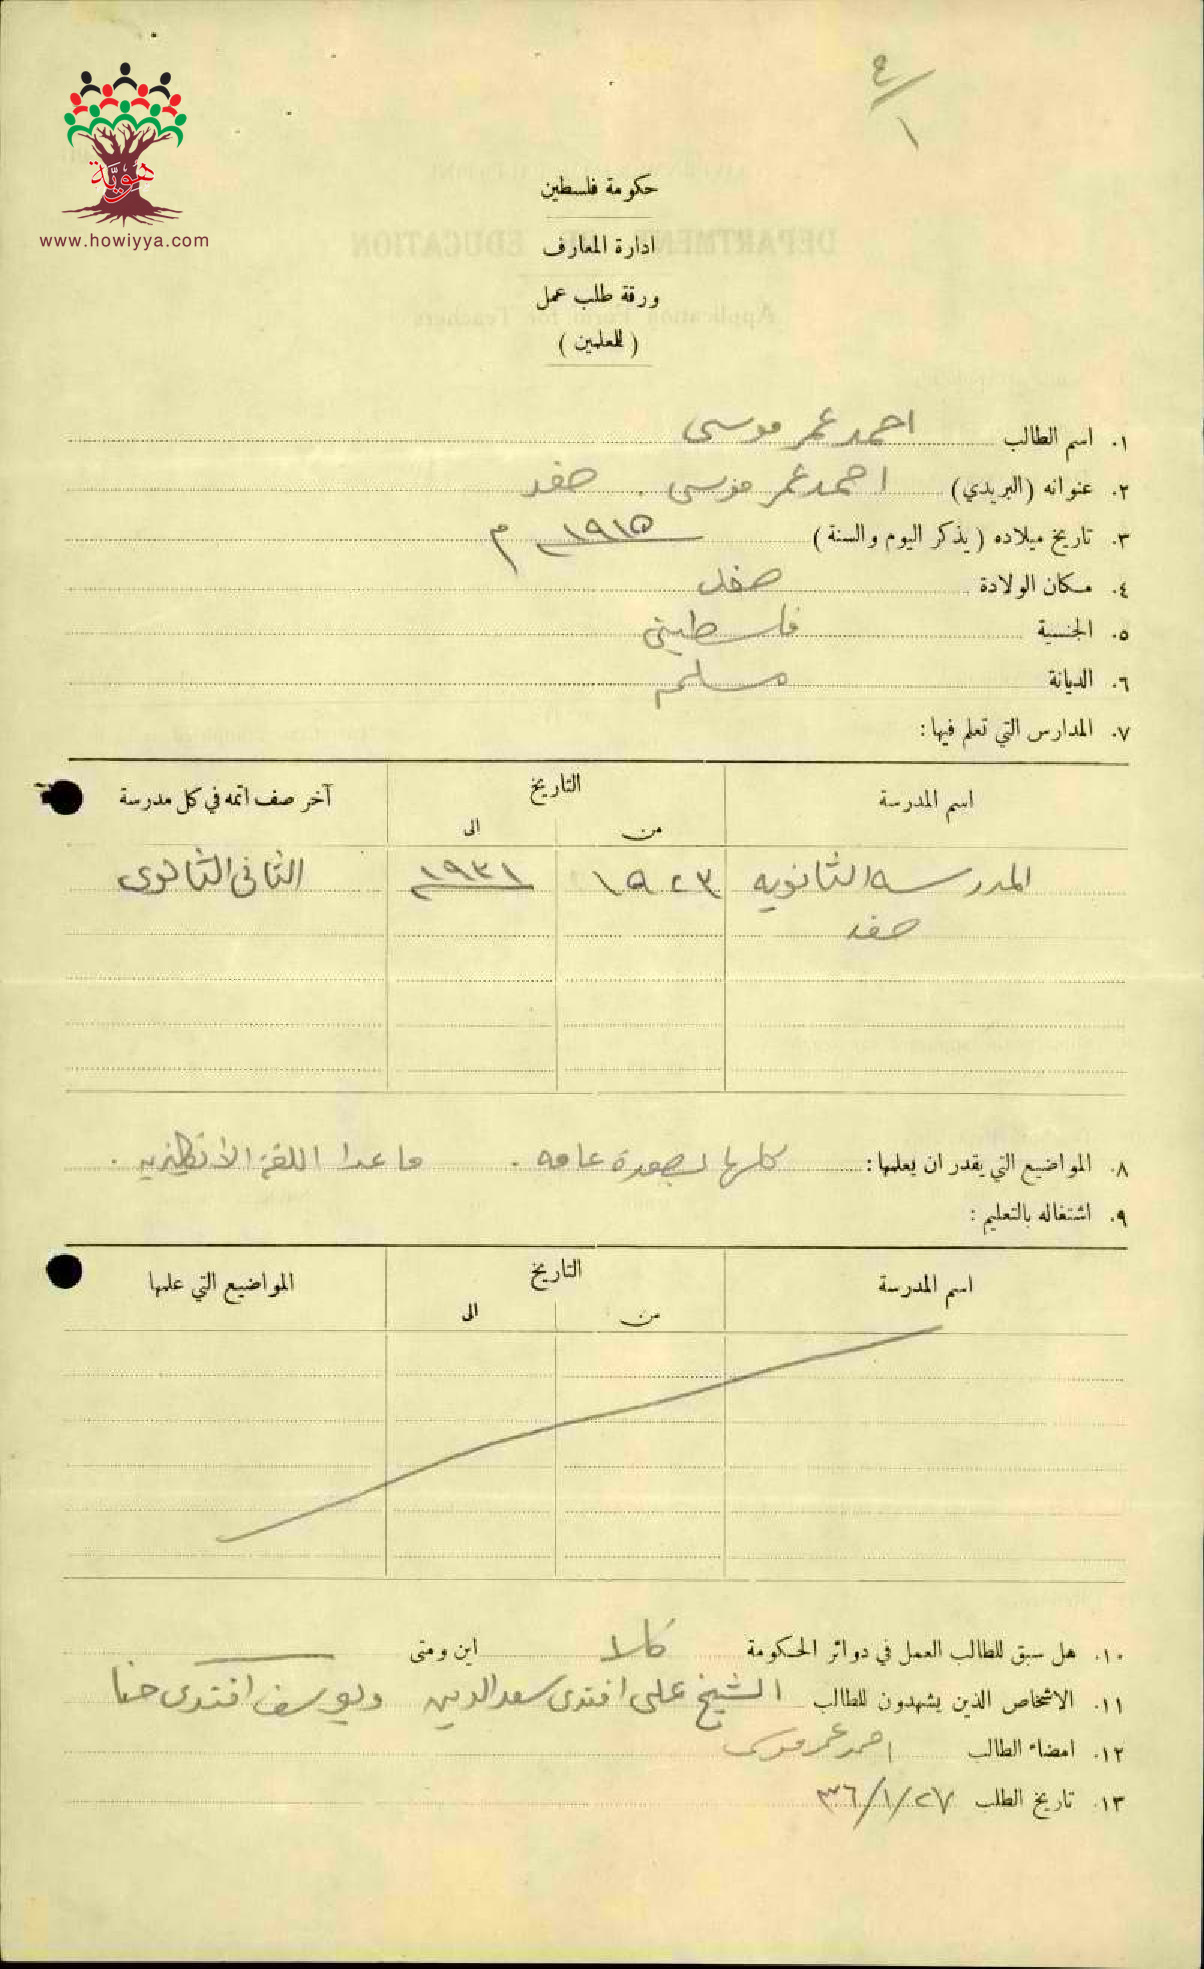 ٤/١
هوية
www.howiyya.com
حكومة فلسطين
ادارة المعارف
ورقة طلب عمل
( للمعلمين )
١. اسم الطالب احمد عمر موسى
٢. عنوانه (البريدي) احمد عمر موسى . صفد
٣. تاريخ ميلاده ( يذكر اليوم والسنة ) ١٩١٥ م
٤. مكان الولادة صفد
٥. الجنسية فلسطيني
٦. الديانة مسلم
٧. المدارس التي تعلم فيها :
اسم المدرسة التاريخ آخر صف اتمه في كل مدرسة
من الى
المدرسه الثانويه ١٩٢٣ ١٩٣١ الثاني الثانوى
صفد
٨. المواضيع التي يقدر ان يعلمها : كلها بصورة عامه . ما عدا اللغة الانكليزيه .
٩. اشتغاله بالتعليم :
اسم المدرسة التاريخ المواضيع التي علمها
من الى
١٠. هل سبق للطالب العمل في دوائر الحكومة كلا اين ومتى
١١. الاشخاص الذين يشهدون للطالب الشيخ على افندى سعد الدين ويوسف افندى حنا
١٢. امضاء الطالب احمد عمر موسى
١٣. تاريخ الطلب ٣٦/١/٢٧